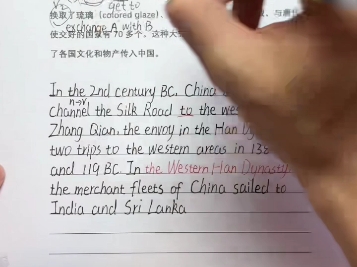 get to
换取了琉璃 (colored glaze).
exchange A with B
使交好的国家有70多个。这种大
了各国文化和物产传入中国。
In the 2nd century BC, China
n→v
channel the Silk Road to the wes
Zhang Qian, the envoy in the Han Dy
two trips to the western areas in 138
and 119 BC. In the Western Han Dynasty,
the merchant fleets of China sailed to
India and Sri Lanka